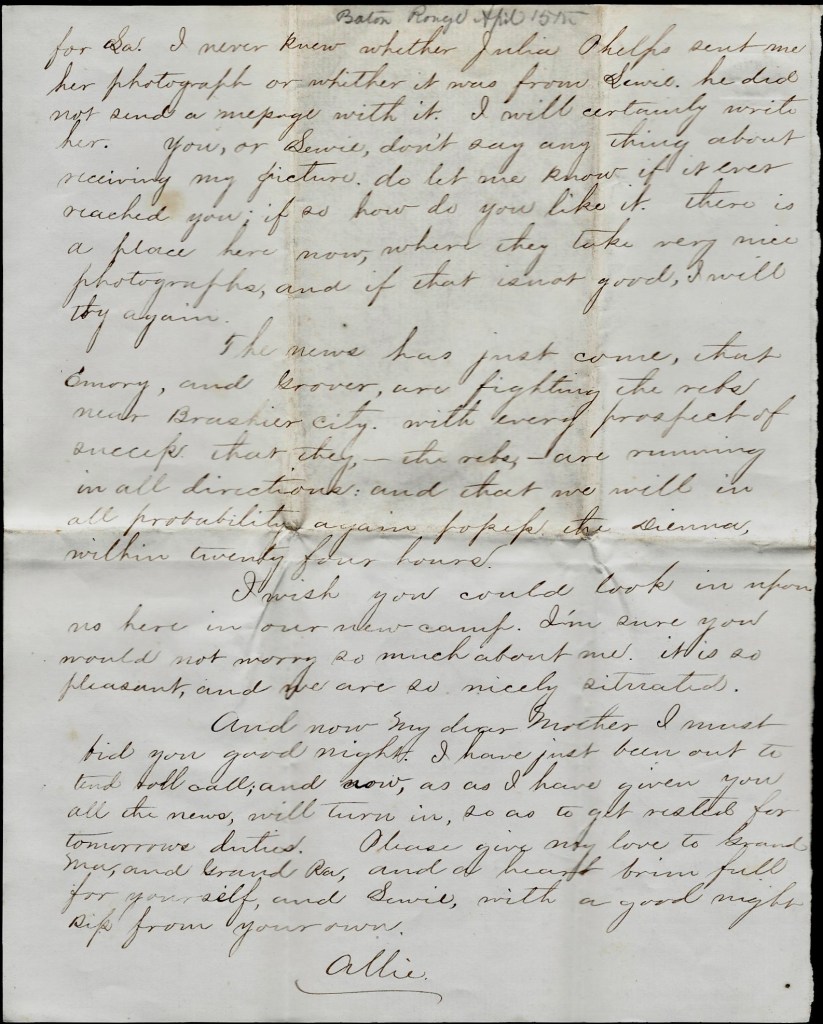 Baton Rouge April 15th
for La. I never knew whether Julia Phelps sent me
her photograph or whether it was from Lewie. he did
not send a message with it. I will certainly write
her. You, or Lewie, don't say any thing about
receiving my picture. do let me know if it ever
reached you; if so how do you like it. there is
a place here now, where they take very nice
photographs, and if that is not good, I will
try again.
The news has just come, that
Emory, and Grover, are fighting the rebs
near Brashier city. with every prospect of
success that they, – the rebs, – are running
in all directions: and that we will in
all probability again possess the Dienna,
within twenty four hours.
I wish you could look in upon
us here in our new camp. I'm sure you
would not worry so much about me. it is so
pleasant, and we are so nicely situated.
And now My dear Mother I must
bid you good night. I have just been out to
tend roll call; and now, as as I have given you
all the news, will turn in, so as to get rested for
tomorrows duties. Please give my love to Grand
Ma, and Grand Pa, and a heart brim full
for yourself, and Lewie, with a good night
kiss from your own.
Allie.